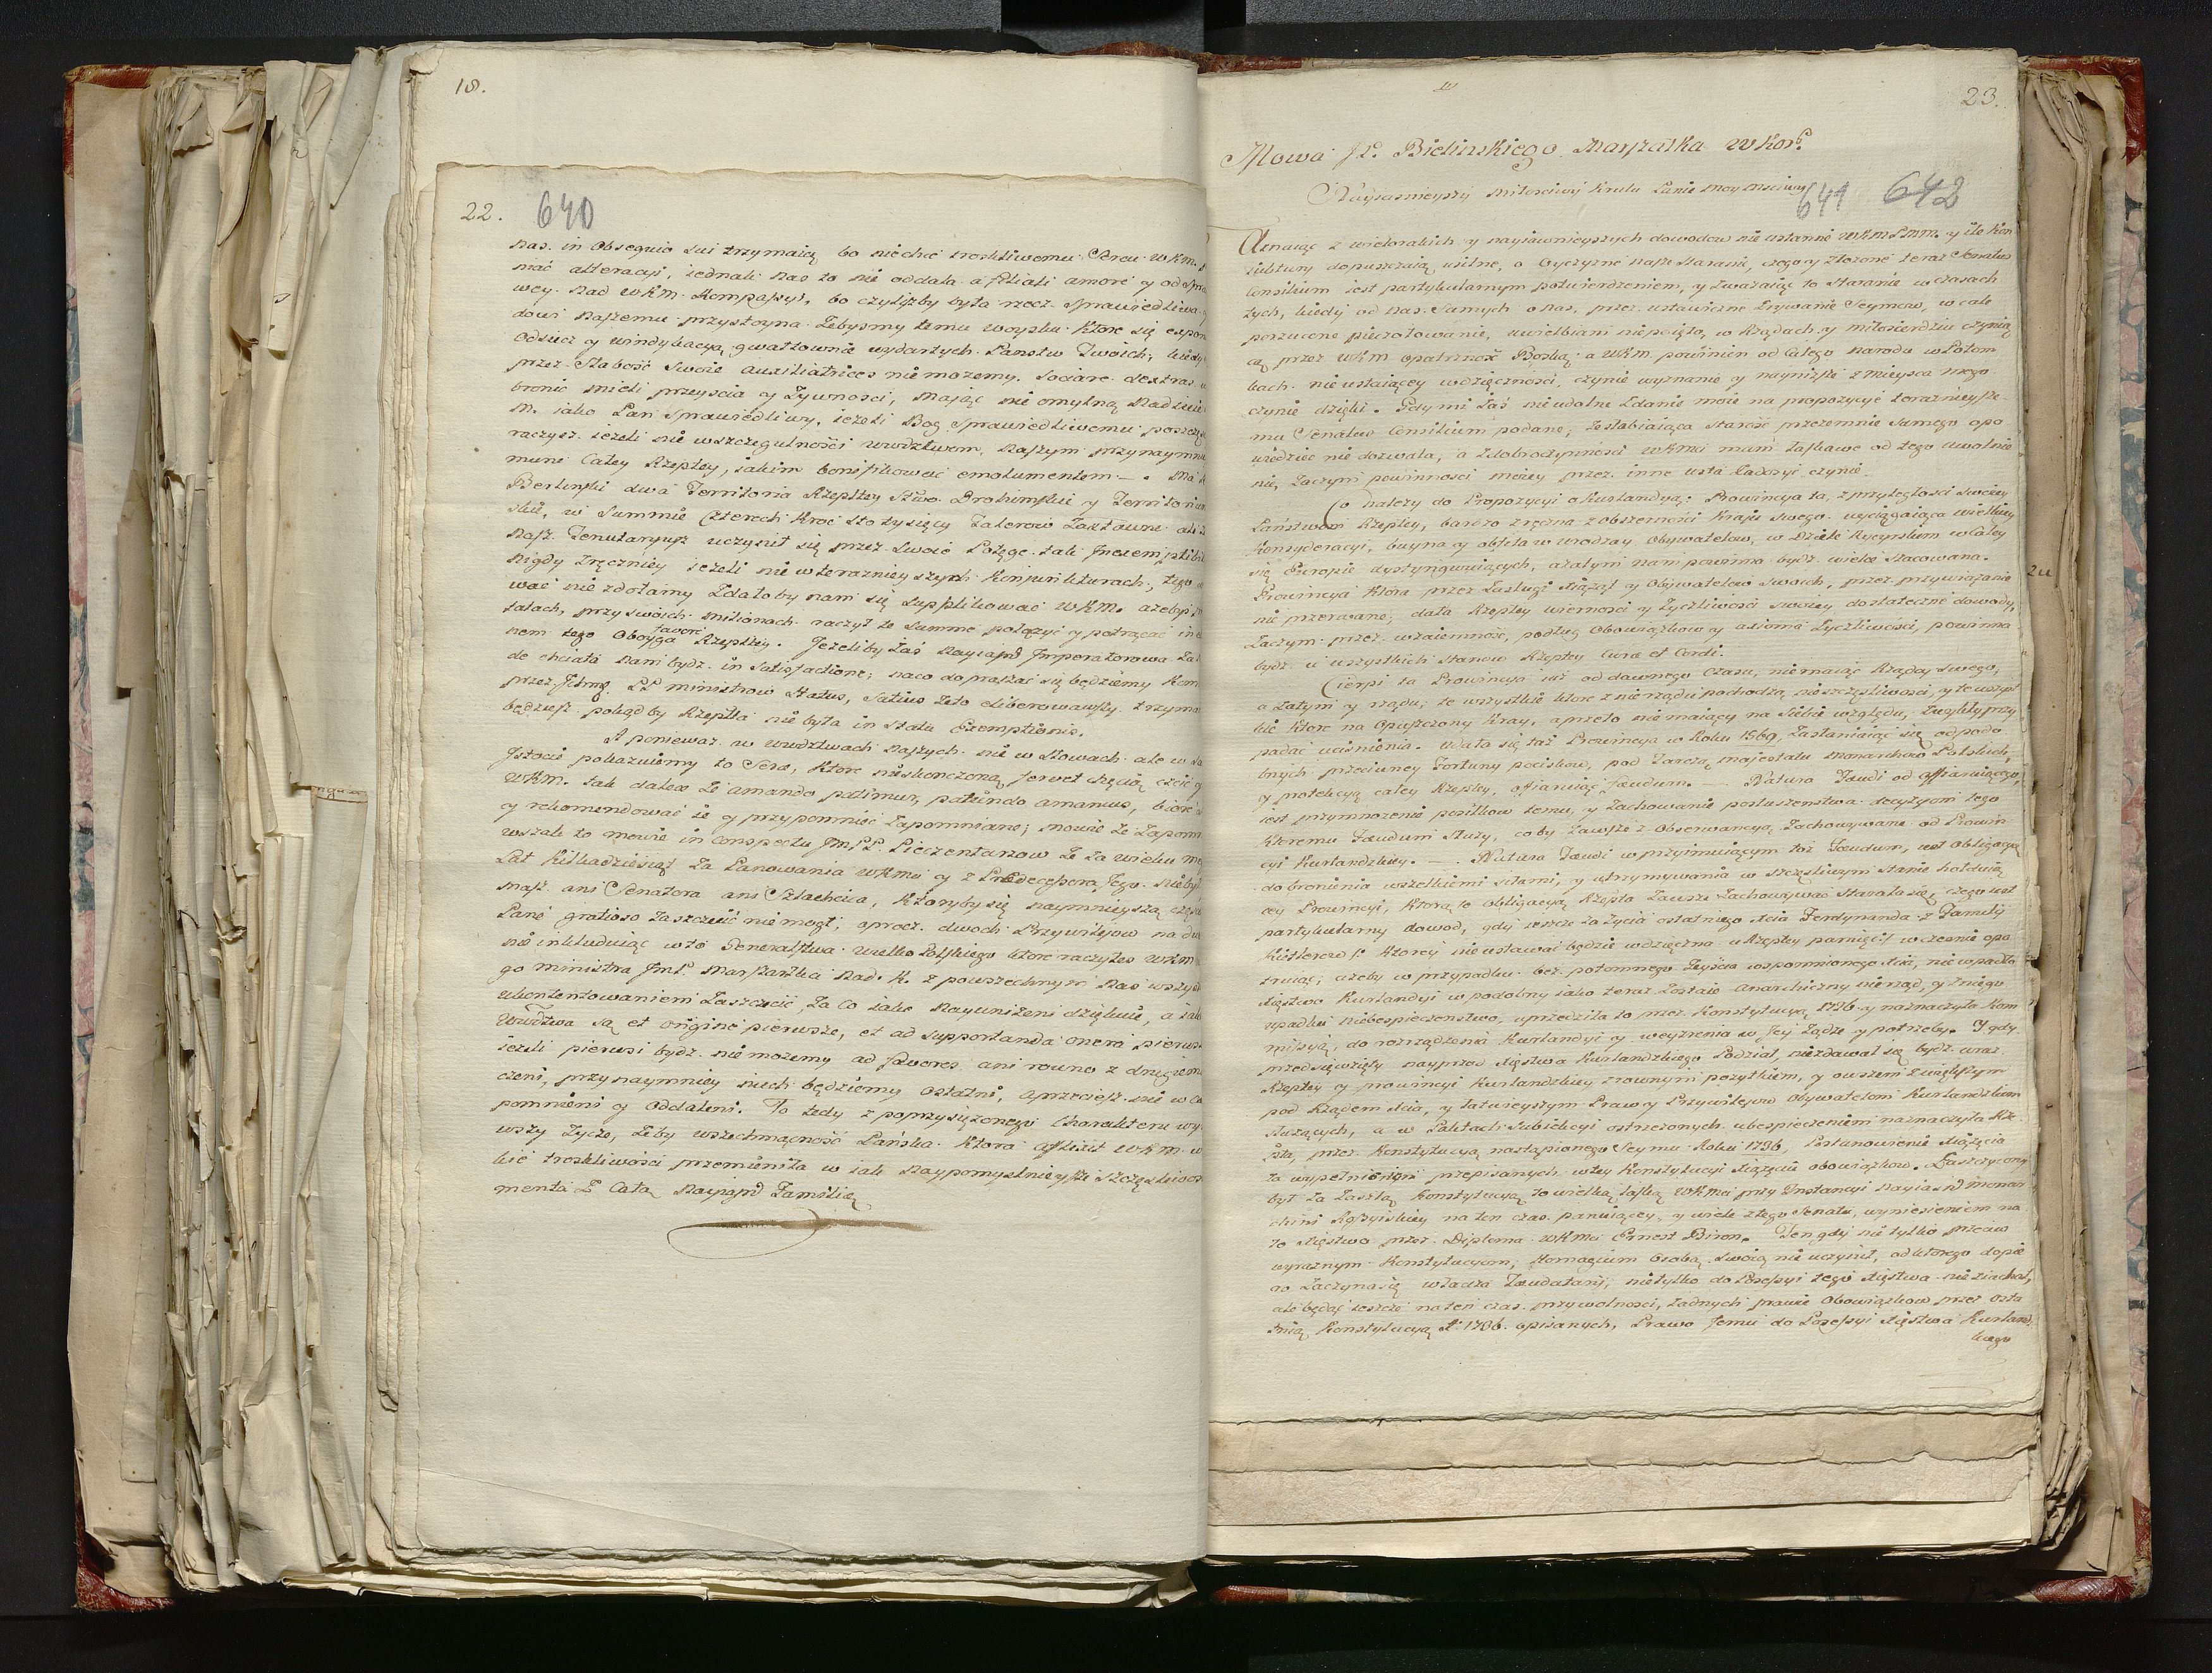 18.
22. 640
nas. in Obsequio sui trzymaią bo niechcę troskliwemu Sercu WKM.
niać alteracyi, iednak nas to nie oddala a filiali amore y od
wey nad WKM. Kompassyi, bo czyliżby była rzecz sprawiedliwa
dowi naszemu przystoyna żebysmy temu woysku ktore się
Odsiecz y windykacyą gwałtownie wydartych Panstw Twoich, kiedy
przez Słabość swoie auxiliatrices niemożemy sociare dextras
bronić mieli przeyscia y Żywnosci, maiąc nie omylną Nadzieię
M. iako Pan Sprawiedliwy, ieżeli Bog Sprawiedliwemu
raczysz ieżeli nie wszczegulności wwdztwem naszym przynaym
mune Całey Rzeptey, iakim bonifikować emolumentem —. Ma
Berlinski dwa Territoria Rzepltey Sstwo Drohimskie y Territorium
skie, w Summie Czterech Kroć sto tysięcy Talerow Zastawne
nasz Tenutaryusz uczynił się przez Swoie Potęgę tak
Nigdy zręczniey ieżeli nie wterazniey szych Konjunkturach, tego
wać nie zdołamy Zdałoby nam się Supplikować WKM. ażebyś
tatach, przy swoich milionach raczył te Summe połączyć y potrącać in
nem tego Oboyga favore Rzeptey. Jeżeliby zaś Nayiaśn Imperatorowa
de chciała nam bydz in Satisfactione; naco dopraszać się będziemy Kom
przez Ichmq. PP ministrow Status, Satius
będziesz pokąd by Rzeptta nie była in Statu Exemptionis.
A ponieważ w wwdztwach naszych nie w Słowach ale w
Istocie pokazuiemy to Serce, ktore nieskonczoną fervet chęcią czcić
WKM. tak dalece że amando patimur, patiendo amamus, biorę
y rekomendować ie y przypomnieć zapomniane; mowie że zapom
wszak to mowie in conspectu JmPP. Pieczentarzow że za wieku
Lat Kilkadziesiąt za Panowania WKMci y z Predecessora Jego nieby
nasz ani Senatora ani Szlachcica, Ktoryby się naymnieyszą
Pane gratioso zaszczicić niemogł, oprocz dwoch Przywilejow na
nie inkluduiąc wto Generalstwa wielko Polskiego ktore raczyłeś WKM
go ministra JmP. Marszałka Nad. K. z powszechnym nas wszys
ukontentowaniem Zaszczicić, za Co iako Nayunizeni dziękuię, a iak
Wwdztwa są et origine pierwsze, et ad supportanda onera pierws
ieżeli pierwsi bydz niemożemy ad favores ani rowno z drugiem
czeni, przynaymniey niech będziemy ostatni, aprzeciesz nie w
pomnieni y Oddaleni. To tedy z poprzysiężonego Charakteru wy
wszy życzę, żeby wszechmocność Pańska ktora afflixit WKM
kie troskliwości przemieniła w iak Naypomyslnieysze szczęśliwos
menta z Całą Nayiaśn Familią

23.
Mowa JP. Bielinskiego Marszałka WKor.
Nayiasnieyszy Miłościwy Krolu Panie moy Msciwy
641 642
Uznaiąc z wielorakich y nayiawnieyszych dowodow nie ustanne WKMPNM. y ile Kon
iunktury dopuszczaią usilne, o Oyczyznę nasze staranie, czego y złożone teraz Senatus
Consilium iest partykularnym potwierdzeniem, y zwazaiąc to staranie wczasach
tych, kiedy od nas Samych o nas, przez ustawiczne zrywanie Seymow, w cale
porzucone pieczołowanie, uwielbiam niepoiętą, w Rządach y miłosierdziu czynią
cą przez WKM opatrzność Boską, a WKM. powinien od Całego narodu wPotom
kach nieustaiącey wdzięczności, czynię wyznanie y nayniższe zmieysca mego
czynię dzięki. Gdy mi zaś nieudolne zdanie moie na propozycye teraznieysze
mu Senatus Consilium podane, zesłabiaiąca starość przezemnie Samego opo
wiedzieć nie dozwala, a zdobroczynności WKMci mam łaskawe od tego uwolnie
nie, zaczym powinności moiey przez inne usta
Co należy do Propozycyi o Kurlandyą: Prowincya ta, z przyległości swoiey
Państwom Rzeptey, bardzo zręczna zobszerności Kraiu swego wyciągaiąca wielkiey
Konsyderacyi, buyna y obfita w urodzay Obywatelow, w Dziele Rycyrskim wCałey
się Europie dystyngwuiących, azatym nam powinna bydz wielce Szacowana.
Prowincya Ktora przez Zasługi Xiążąt y Obywatelow swoich, przez przywiązanie
nie przerwane, dała Rzeptey wierności y Życzliwości swoiey dostateczne dowody,
zaczym przez wzaiemność, podług Obowiązkow y Życzliwości, powinna
bydz u wszystkich Stanow Rzeptey Curæ et Cordi.
Cierpi ta Prowincya iuż od dawnego Czasu, niemaiąc Rządcy swego,
a zatym y rządu; te wszystkie ktore z nierządu pochodzą nieszczęśliwości, y te wszyst
kie ktore na Opuszczony Kray, aprzeto niemaiący na siebie względu, zwykły przy
padać uciśnienia. Udała się taż Prowincya w Roku 1569, zasłaniaiąc się odpodo
bnych przeciwney Fortuny pociskow, pod Tarczą majestatu Monarchow Polskich,
y protekcyą całey Rzeptey, ofiaruiąc Fæudum. —. Natura Fæudi od ofiaruiącego,
iest przymnożenie posiłkow temu, y zachowanie posłuszenstwa decyzyom tego
Ktoremu Fæudum służy, co by zawsze z Obserwancyą zachowywane od Prowin
cyi Kurlandzkiey. —. Natura Fæudi w przyimuiącym toż Fæudum, iest Obligacya
do bronienia wszelkiemi siłami, y utrzymywania w szczęśliwym stanie hołduią
cey Prowincyi, Ktorą to obligacyą Rzepta zawsze zachowywać starała się, czego iest
partykularny dowod, gdy ieszcze za życia ostatniego Xcia Ferdynanda z Familij
Kietlerow /: Ktorey nieustawać będzie wdzięczna uRzeptey pamięć :/ wcześnie opa
truiąc, ażeby w przypadku bez potomnego zeyścia wspomnionego Xcia, niewpadło
Xięstwo Kurlandyi w podobny iako teraz zostaie anarchiczny nierząd, y zniego
upadku niebespieczenstwo, uprzedziła to prez. Konstytucyą 1736. y naznaczyła Kom
missyą, do rozrządzenia Kurlandyi y weyźrenia w Jey żądze y potrzeby. Y gdy
przedsięwzięty nayprzod Xięstwa Kurlandzkiego Podział, niezdawał się bydz wraz
Rzeptey y prowincyi Kurlandzkiey z rownym pozytkiem, y owszem z większym
pod Rządem Xcia, y łatwieyszym Praw y Przywilejow Obywatelom Kurlandzkim
służących, a w Paktach Subiekcyi ostrzeżonych ubespieczeniem naznaczyła Rze
pta, przez Konstytucyą nastąpionego Seymu Roku 1736, Postanowienie Xiążęcia
za wypełnieniem przepisanych wtey Konstytucyi Xiążęciu obowiązkow. Zaszczycony
był za zaszłą Konstytucyą to wielką łaską WKMci przy Instancyi Nayiaśn monar
chini Rossyiskiey na ten czas panuiącey, y wiele ztego Senatu, wyniesieniem na
to Xięstwo przez Diploma WKMci Ernest Biron. Ten gdy nie tylko przeciw
wyraznym Konstytucyom, Homagium Osobą swoią nie uczynił, od ktorego dopie
ro zaczyna się władza Fæudatarij, nietylko do Possessyi tego Xięstwa niezjachał,
ale będąc ieszcze na ten czas przy wolności, żadnych prawie Obowiązkow przez osta
tnią Konstytucyą A: 1736. opisanych, Prawo Jemu do Possessyi Xięstwa Kurland
kiego